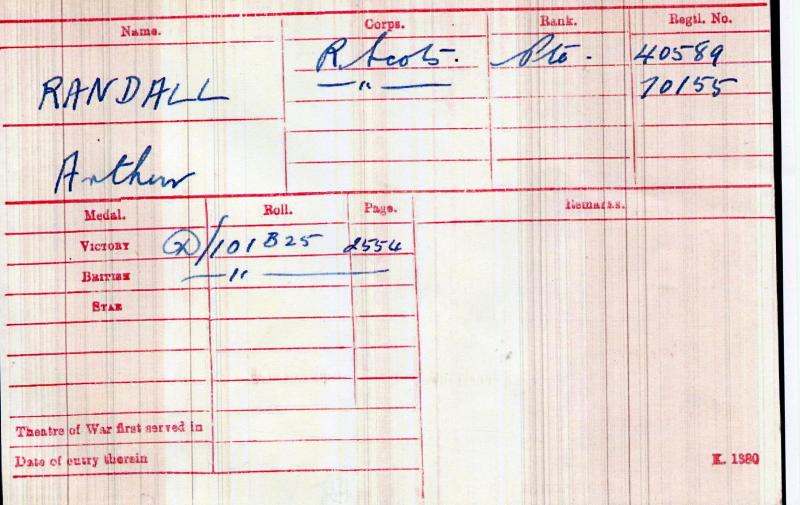 Name. Corps. Rank. Regtl. No.
R. Scots. Pte. 40589
RANDALL —"— 70155
Arthur
Medal. Roll. Page. Remarks.
VICTORY /101 B25 2554
BRITISH —"—
STAR
Theatre of War first served in
Date of entry therein
K. 1380